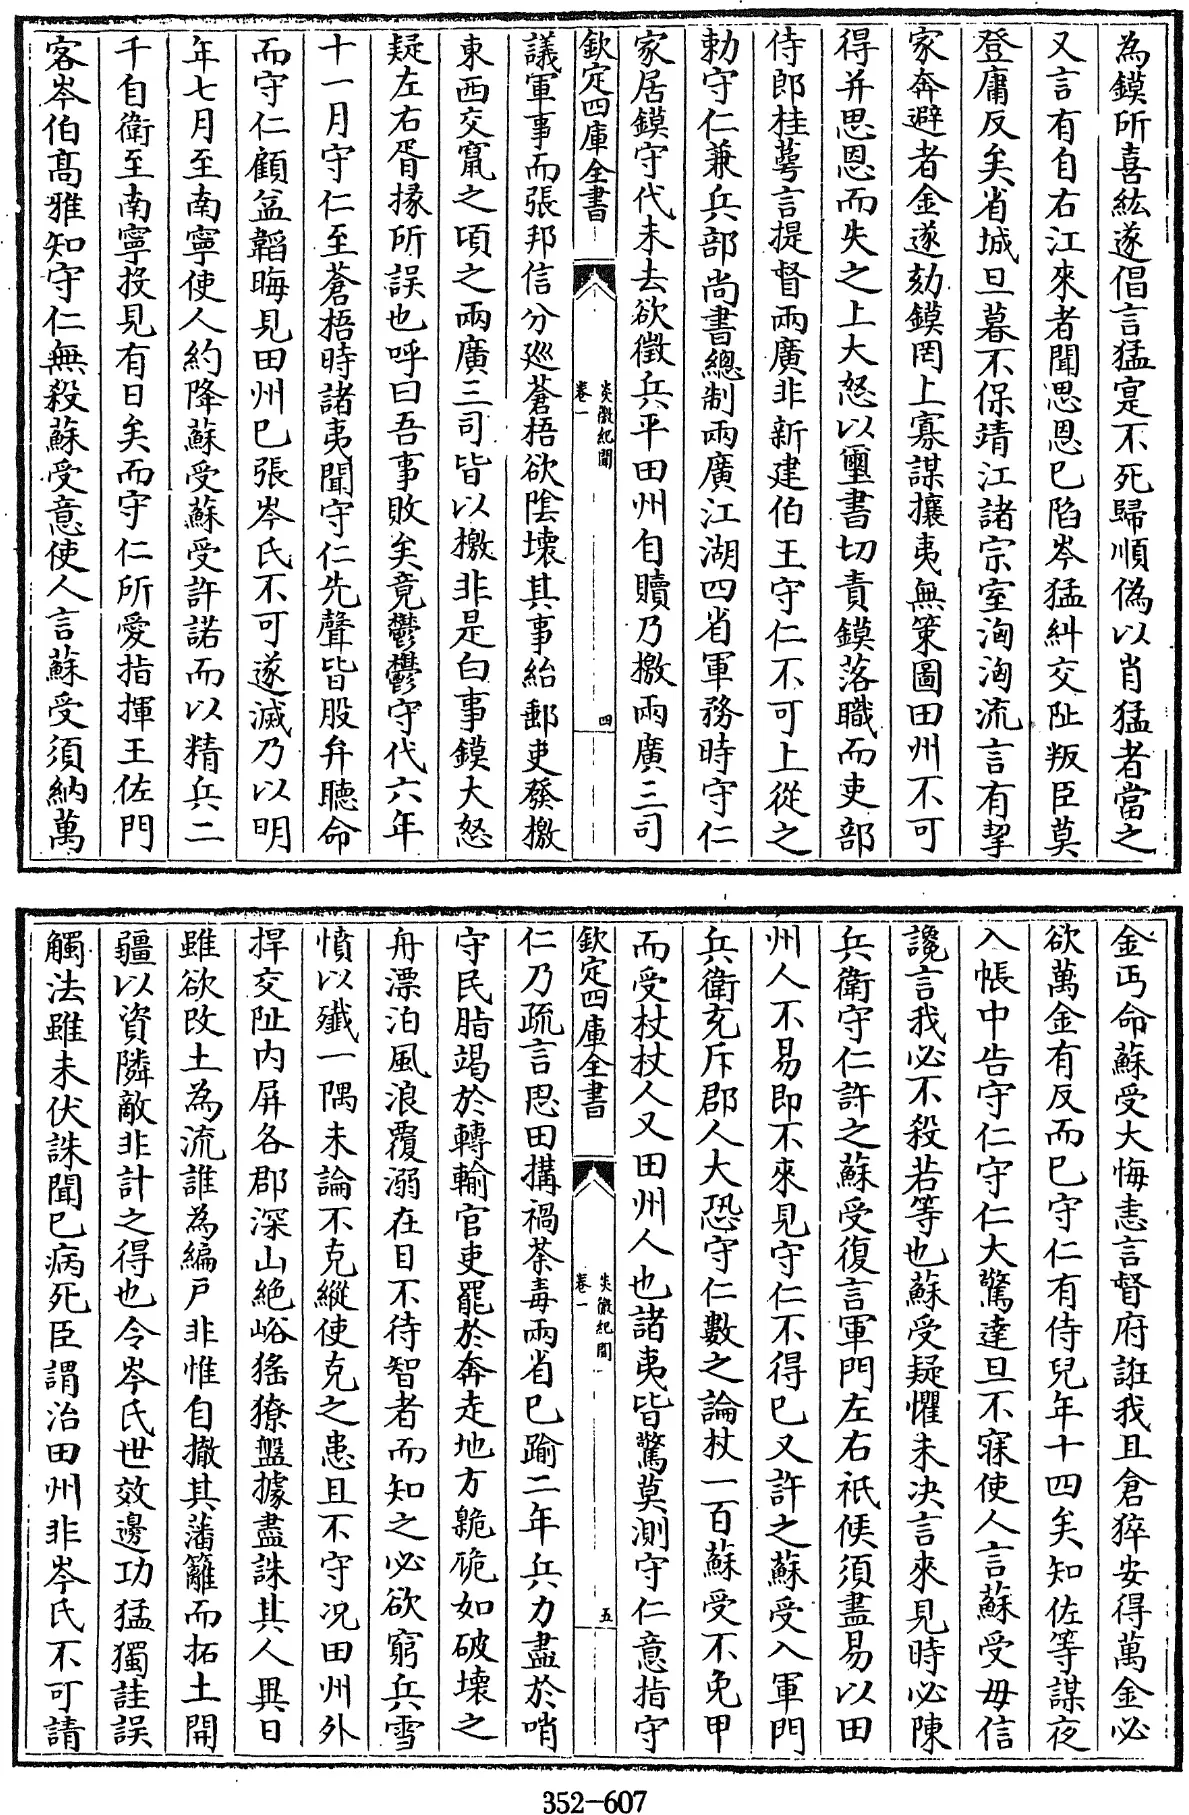 為鏌所喜紘遂倡言猛寔不死歸順偽以肖猛者當之
又言有自右江來者聞思恩已陷岑猛糾交阯叛臣莫
登庸反矣省城旦暮不保靖江諸宗室洶洶流言有挈
家奔避者金遂劾鏌罔上寡謀攘夷無策圖田州不可
得并思恩而失之上大怒以璽書切責鏌落職而吏部
侍郎桂萼言提督兩廣非新建伯王守仁不可上從之
勅守仁兼兵部尚書總制兩廣江湖四省軍務時守仁
家居鏌守代未去欲徵兵平田州自贖乃檄兩廣三司
欽定四庫全書
炎徼紀聞
卷一
四
議軍事而張邦信分廵蒼梧欲陰壊其事紿郵吏發檄
東西交竄之頃之兩廣三司皆以檄非是白事鏌大怒
疑左右胥掾所誤也呼曰吾事敗矣竟鬱鬱守代六年
十一月守仁至蒼梧時諸夷聞守仁先聲皆股弁聴命
而守仁顧益韜晦見田州已張岑氏不可遂滅乃以明
年七月至南寧使人約降蘇受蘇受許諾而以精兵二
千自衛至南寧投見有日矣而守仁所愛指揮王佐門
客岑伯髙雅知守仁無殺蘇受意使人言蘇受須納萬
金丐命蘇受大悔恚言督府誑我且倉猝安得萬金必
欲萬金有反而已守仁有侍兒年十四矣知佐等謀夜
入帳中告守仁守仁大驚達旦不寐使人言蘇受毋信
讒言我必不殺若等也蘇受疑懼未决言來見時必陳
兵衛守仁許之蘇受復言軍門左右祇候須盡易以田
州人不易即不來見守仁不得已又許之蘇受入軍門
兵衛充斥郡人大恐守仁數之論杖一百蘇受不免甲
而受杖杖人又田州人也諸夷皆驚莫測守仁意指守
欽定四庫全書
炎徼紀聞
卷一
五
仁乃疏言思田搆禍荼毒兩省已踰二年兵力盡於哨
守民脂竭於轉輸官吏罷於奔走地方臲卼如破壊之
舟漂泊風浪覆溺在目不待智者而知之必欲窮兵雪
憤以殱一隅未論不克縱使克之患且不守况田州外
捍交阯内屏各郡深山絶峪猺獠盤據盡誅其人異日
雖欲改土為流誰為編戶非惟自撤其藩籬而拓土開
疆以資隣敵非計之得也今岑氏世效邊功猛獨詿誤
觸法雖未伏誅聞已病死臣謂治田州非岑氏不可請
352-607